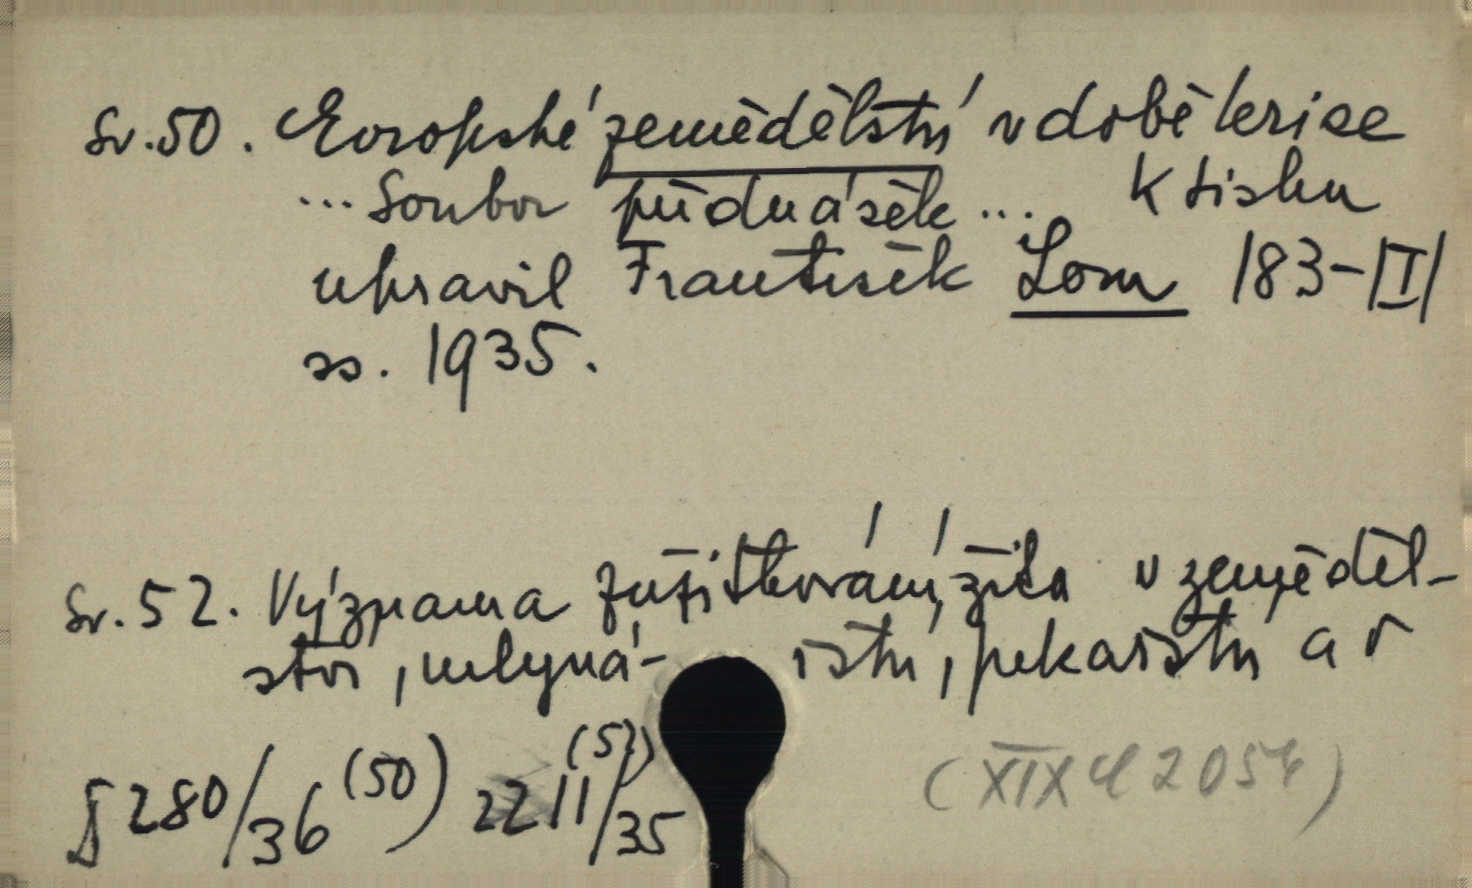 Sv. 50. Evropské zemědělství v době krise
... Soubor přednášek ... K tisku
upravil František Lom 183-|I|
ss. 1935.
Sv. 52. Význam a zužitkování žita v zeměděl-
ství, mlyná- řství, pekařství a v
§ 280/36 (50) 2211/35 (52)
(XIX H 2054)